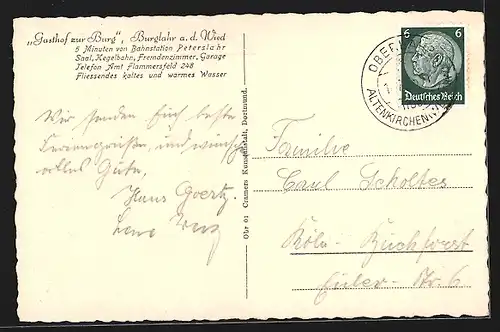 „Gasthof zur Burg", Burglahr a. d. Wied
5 Minuten von Bahnstation Peterslahr
Saal, Kegelbahn, Fremdenzimmer, Garage
Telefon Amt Flammersfeld 248
Fliessendes kaltes und warmes Wasser
Wir senden Euch beste
Feriengrüße, und wünschen
alles Gute,
Hans Goertz
Obr 61 Cramers Kunstanstalt, Dortmund.
6 6
Deutsches Reich
ALTENKIRCHEN
Familie
Carl Scholtes
Köln-Buchforst
Euler-Str. 6